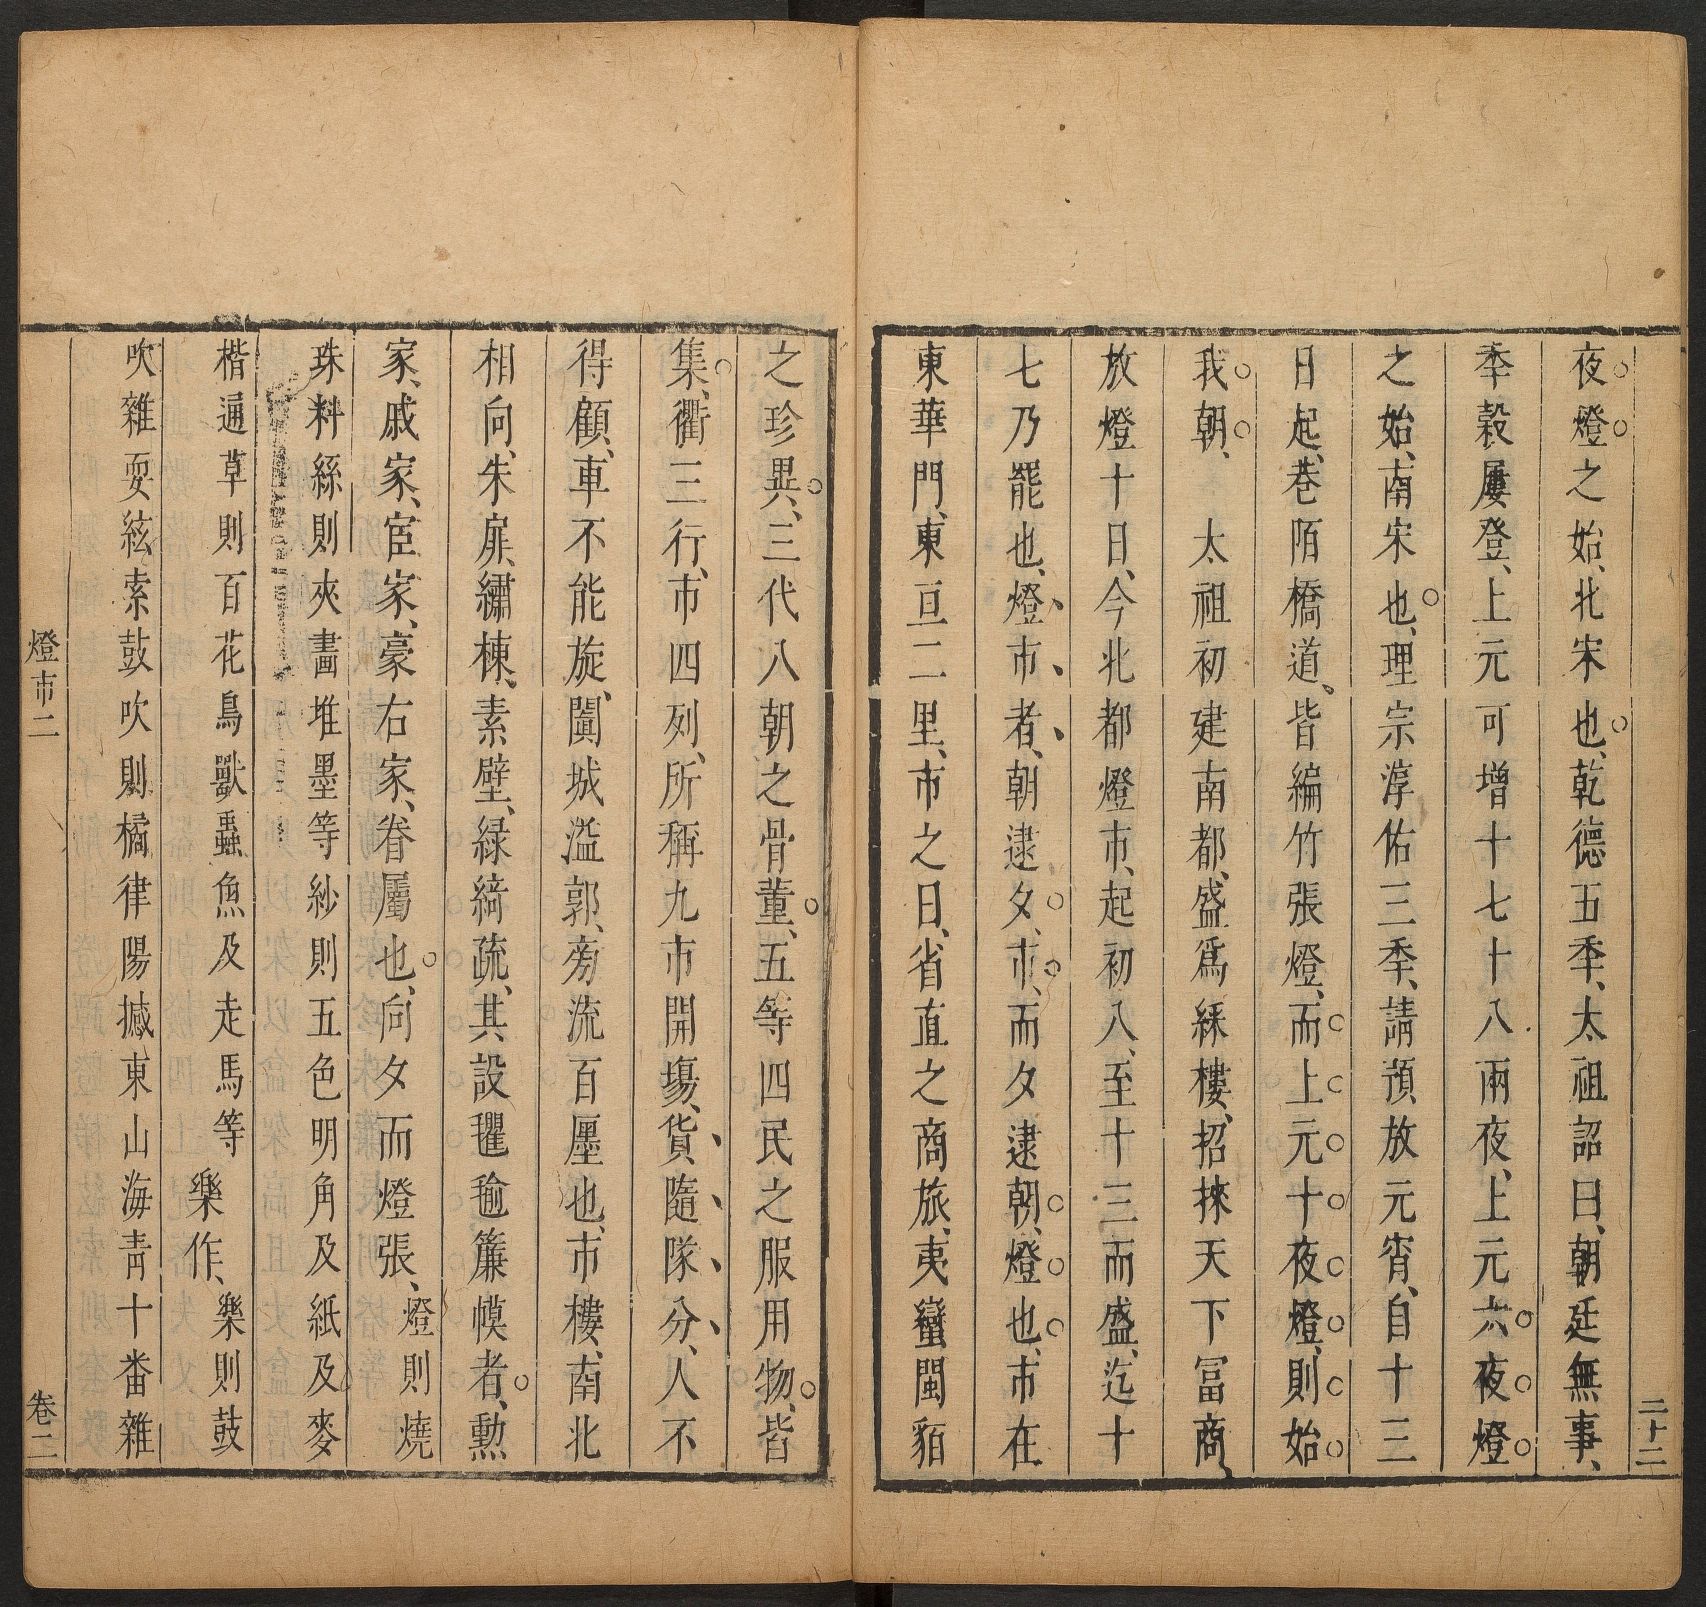 二十二
夜燈之始、北宋也、乾德五年、太祖詔曰、朝廷無事、
年穀屢登、上元可增十七十八兩夜、上元六夜燈
之始、南宋也、理宗淳佑三年、請預放元宵、自十三
日起、巷陌橋道、皆編竹張燈、而上元十夜燈、則始
我朝、太祖初建南都、盛爲綵樓、招徠天下富商、
放燈十日、今北都燈市、起初八、至十三而盛、迄十
七乃罷也、燈市者、朝逮夕、市、而夕逮朝、燈也、市在
東華門、東亘二里、市之日、省直之商旅、夷蠻閩貊
之珍異、三代八朝之骨董、五等四民之服用物、皆
集、衢三行、市四列、所稱九市開場、貨隨隊分、人不
得顧、車不能旋、闐城溢郭、旁流百廛也、市樓、南北
相向、朱扉、繡棟、素壁、緑綺疏、其設氍毹簾幙者、勲
家、戚家、宦家、豪右家、眷屬也、向夕而燈張、燈則燒
珠料絲則夾畫堆墨等紗則五色明角及紙及麥
楷通草則百花鳥獸蟲魚及走馬等 樂作、樂則鼓
吹雜耍絃索鼓吹則橘律陽撼東山海青十番雜
燈市二
卷二